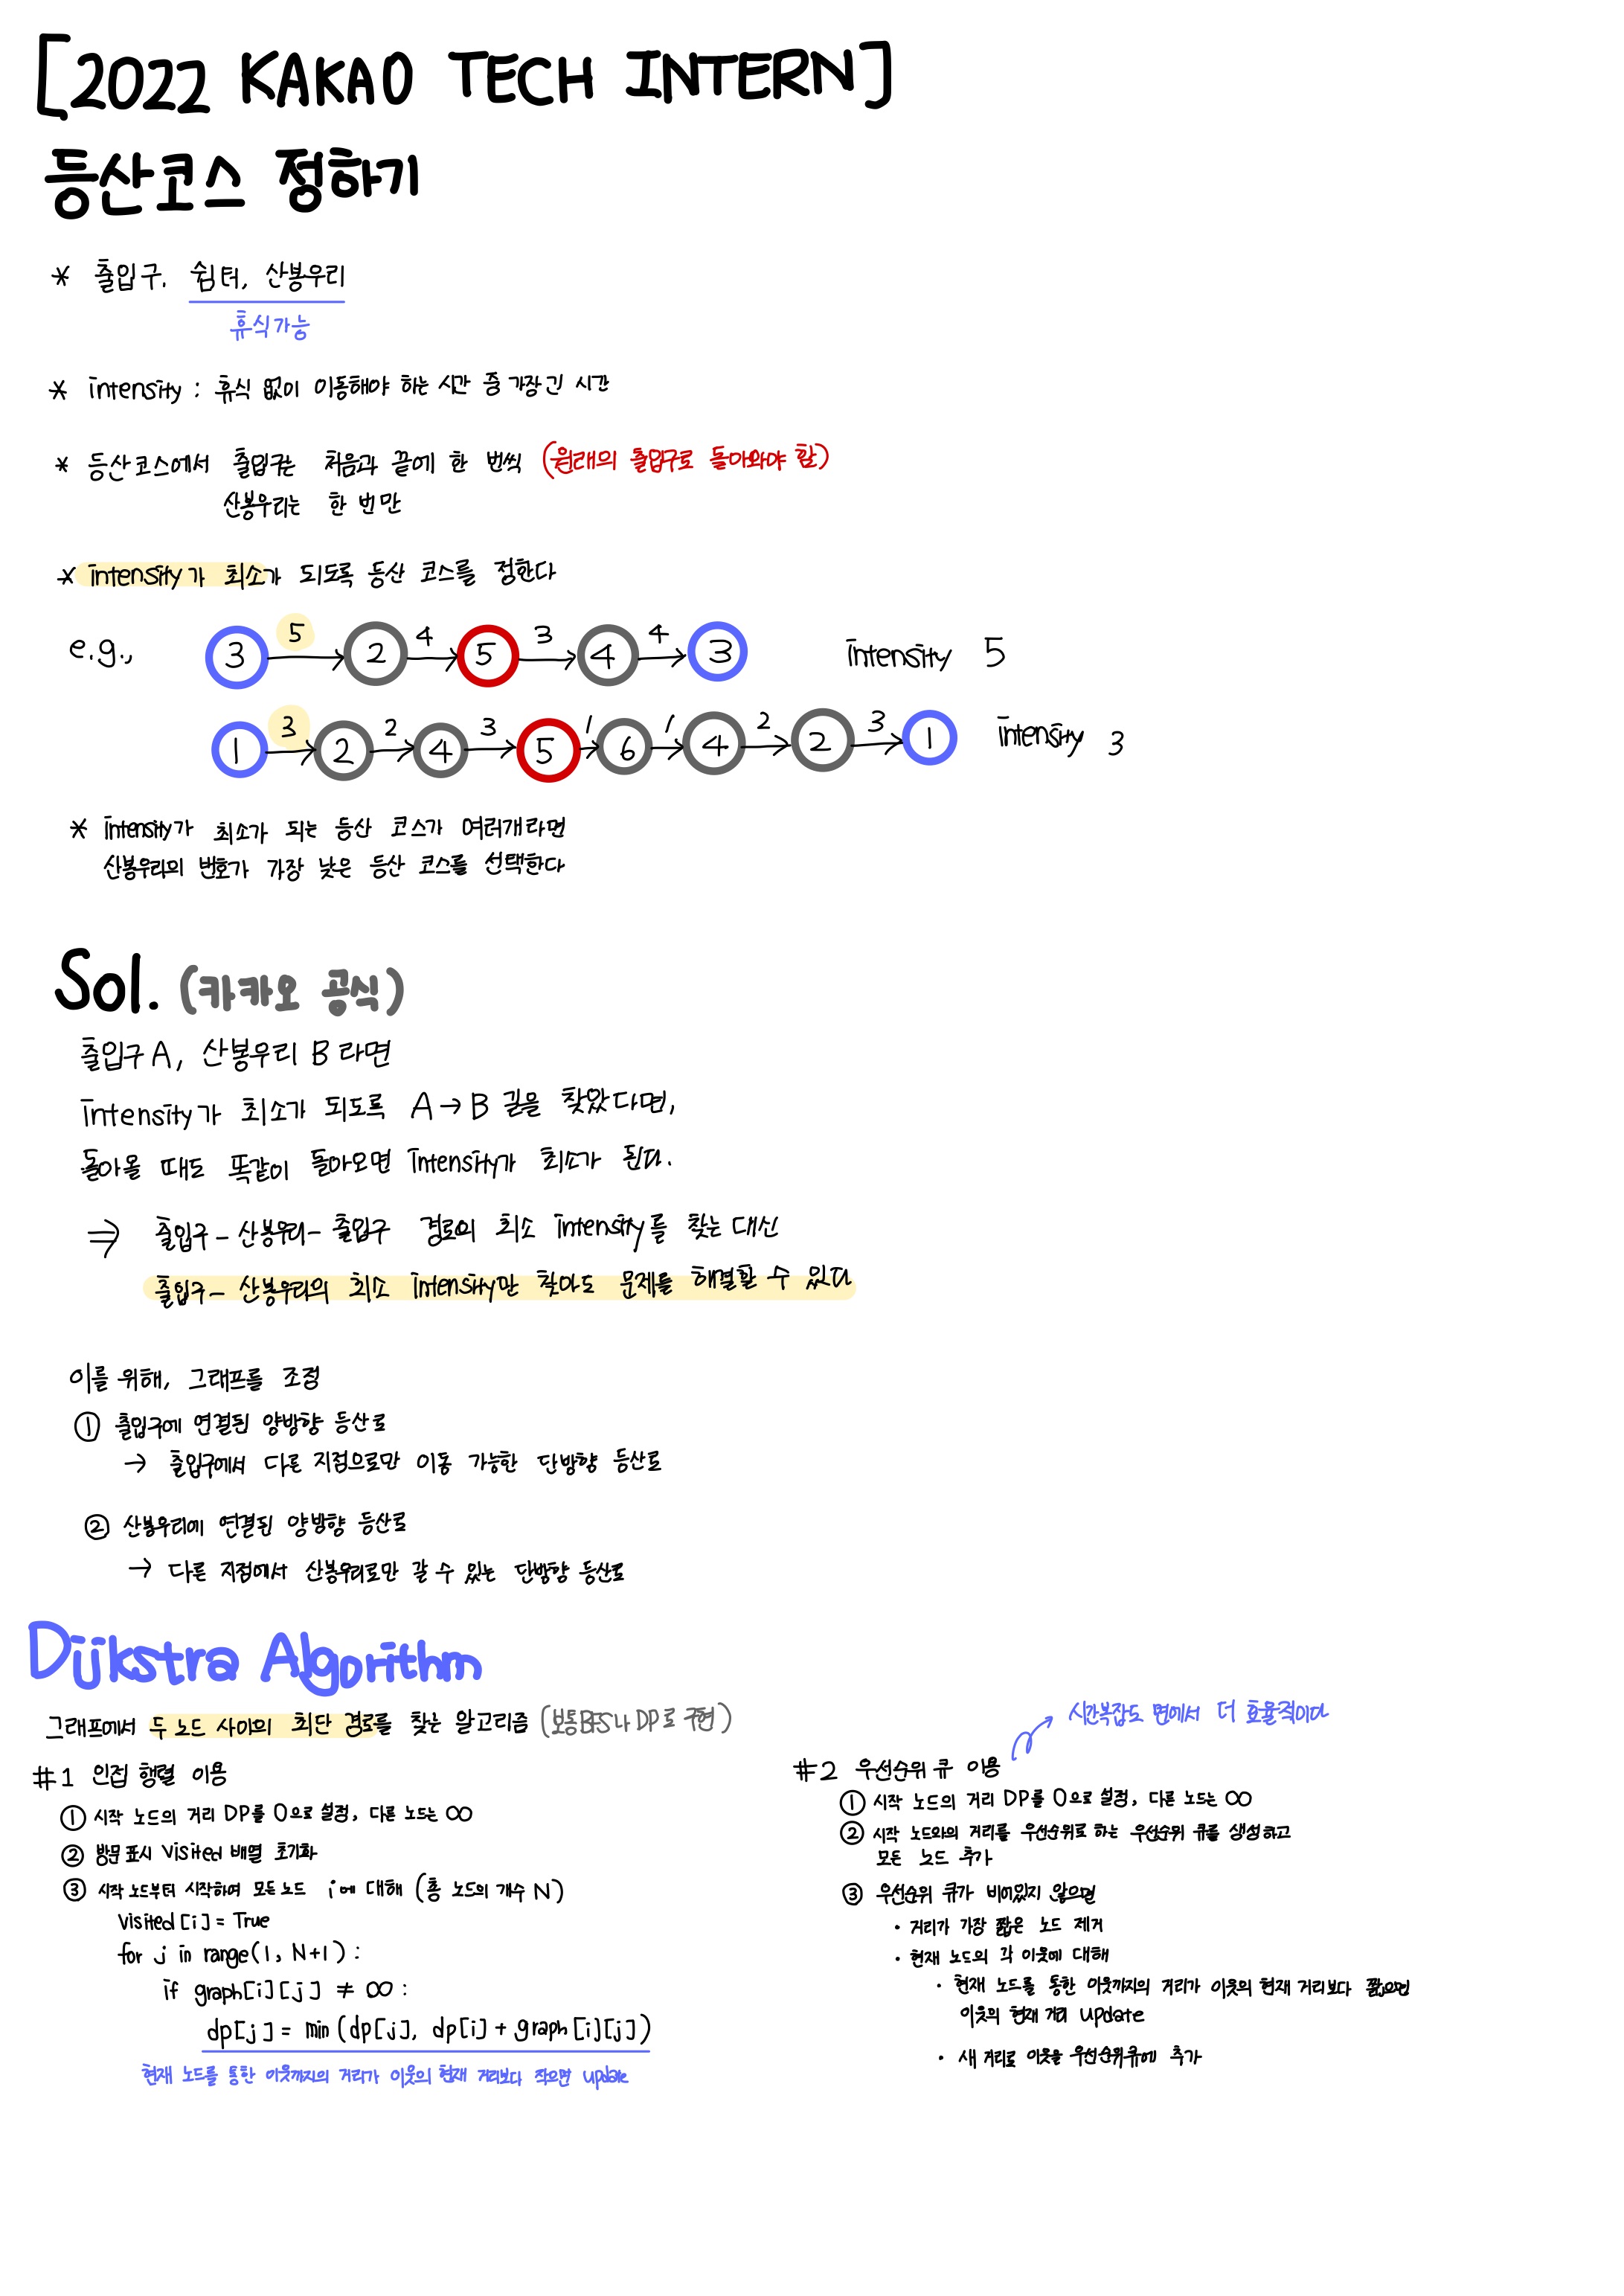 [2022 KAKAO TECH INTERN]
등산코스 정하기
* 출입구, 쉼터, 산봉우리
휴식가능
* intensity : 휴식 없이 이동해야 하는 시간 중 가장 긴 시간
* 등산코스에서 출입구는 처음과 끝에 한 번씩 (원래의 출입구로 돌아와야 함)
산봉우리는 한 번만
* intensity가 최소가 되도록 등산 코스를 정한다
e.g., 3 5 → 2 4 → 5 3 → 4 4 → 3 intensity 5
1 3 → 2 2 → 4 3 → 5 1 → 6 1 → 4 2 → 2 3 → 1 intensity 3
* intensity가 최소가 되는 등산 코스가 여러개라면
산봉우리의 번호가 가장 낮은 등산 코스를 선택한다
Sol. (카카오 공식)
출입구 A, 산봉우리 B 라면
intensity가 최소가 되도록 A → B 길을 찾았다면,
돌아올 때도 똑같이 돌아오면 intensity가 최소가 된다.
⇒ 출입구 - 산봉우리 - 출입구 경로의 최소 intensity를 찾는 대신
출입구 - 산봉우리의 최소 intensity만 찾아도 문제를 해결할 수 있다
이를 위해, 그래프를 조정
① 출입구에 연결된 양방향 등산로
→ 출입구에서 다른 지점으로만 이동 가능한 단방향 등산로
② 산봉우리에 연결된 양방향 등산로
→ 다른 지점에서 산봉우리로만 갈 수 있는 단방향 등산로
Dijkstra Algorithm
그래프에서 두 노드 사이의 최단 경로를 찾는 알고리즘 (보통 BFS나 DP로 구현)
#1 인접 행렬 이용
① 시작 노드의 거리 DP를 0으로 설정, 다른 노드는 ∞
② 방문 표시 visited 배열 초기화
③ 시작 노드부터 시작하여 모든 노드 i에 대해 (총 노드의 개수 N)
visited[i] = True
for j in range(1, N+1) :
if graph[i][j] ≠ ∞ :
dp[j] = min(dp[j], dp[i] + graph[i][j])
현재 노드를 통한 이웃까지의 거리가 이웃의 현재 거리보다 작으면 update
시간복잡도 면에서 더 효율적이다
#2 우선순위 큐 이용
① 시작 노드의 거리 DP를 0으로 설정, 다른 노드는 ∞
② 시작 노드와의 거리를 우선순위로 하는 우선순위 큐를 생성하고
모든 노드 추가
③ 우선순위 큐가 비어있지 않으면
• 거리가 가장 짧은 노드 제거
• 현재 노드의 각 이웃에 대해
• 현재 노드를 통한 이웃까지의 거리가 이웃의 현재 거리보다 짧으면
이웃의 현재 거리 update
• 새 거리로 이웃을 우선순위큐에 추가